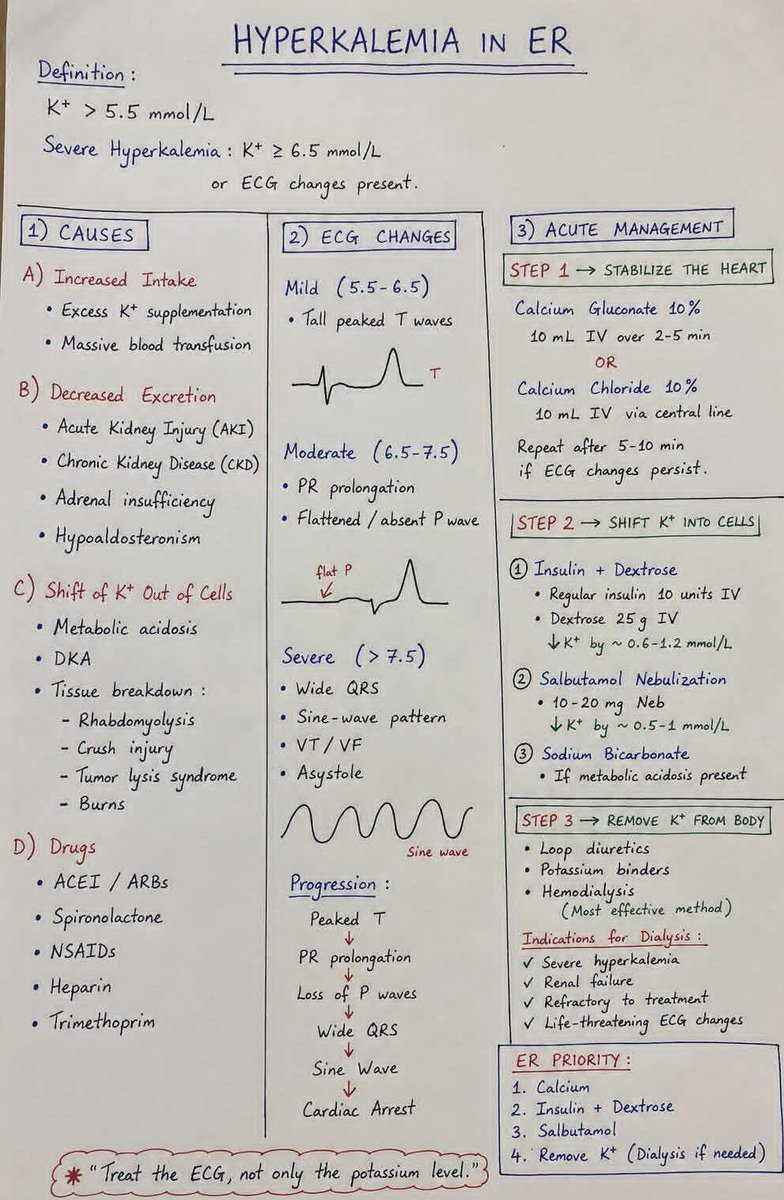 HYPERKALEMIA IN ER
Definition :
K⁺ > 5.5 mmol/L
Severe Hyperkalemia : K⁺ ≥ 6.5 mmol/L
or ECG changes present.
1) CAUSES
A) Increased Intake
• Excess K⁺ supplementation
• Massive blood transfusion
B) Decreased Excretion
• Acute Kidney Injury (AKI)
• Chronic Kidney Disease (CKD)
• Adrenal insufficiency
• Hypoaldosteronism
C) Shift of K⁺ Out of Cells
• Metabolic acidosis
• DKA
• Tissue breakdown :
– Rhabdomyolysis
– Crush injury
– Tumor lysis syndrome
– Burns
D) Drugs
• ACEI / ARBs
• Spironolactone
• NSAIDs
• Heparin
• Trimethoprim
2) ECG CHANGES
Mild (5.5-6.5)
• Tall peaked T waves
T
Moderate (6.5-7.5)
• PR prolongation
• Flattened / absent P wave
flat P
Severe (> 7.5)
• Wide QRS
• Sine-wave pattern
• VT / VF
• Asystole
Sine wave
Progression :
Peaked T
↓
PR prolongation
↓
Loss of P waves
↓
Wide QRS
↓
Sine Wave
↓
Cardiac Arrest
3) ACUTE MANAGEMENT
STEP 1 → STABILIZE THE HEART
Calcium Gluconate 10%
10 mL IV over 2-5 min
OR
Calcium Chloride 10%
10 mL IV via central line
Repeat after 5-10 min
if ECG changes persist.
STEP 2 → SHIFT K⁺ INTO CELLS
① Insulin + Dextrose
• Regular insulin 10 units IV
• Dextrose 25 g IV
↓K⁺ by ~ 0.6-1.2 mmol/L
② Salbutamol Nebulization
• 10-20 mg Neb
↓K⁺ by ~ 0.5-1 mmol/L
③ Sodium Bicarbonate
• If metabolic acidosis present
STEP 3 → REMOVE K⁺ FROM BODY
• Loop diuretics
• Potassium binders
• Hemodialysis
(Most effective method)
Indications for Dialysis :
✓ Severe hyperkalemia
✓ Renal failure
✓ Refractory to treatment
✓ Life-threatening ECG changes
ER PRIORITY :
1. Calcium
2. Insulin + Dextrose
3. Salbutamol
4. Remove K⁺ (Dialysis if needed)
* "Treat the ECG, not only the potassium level."